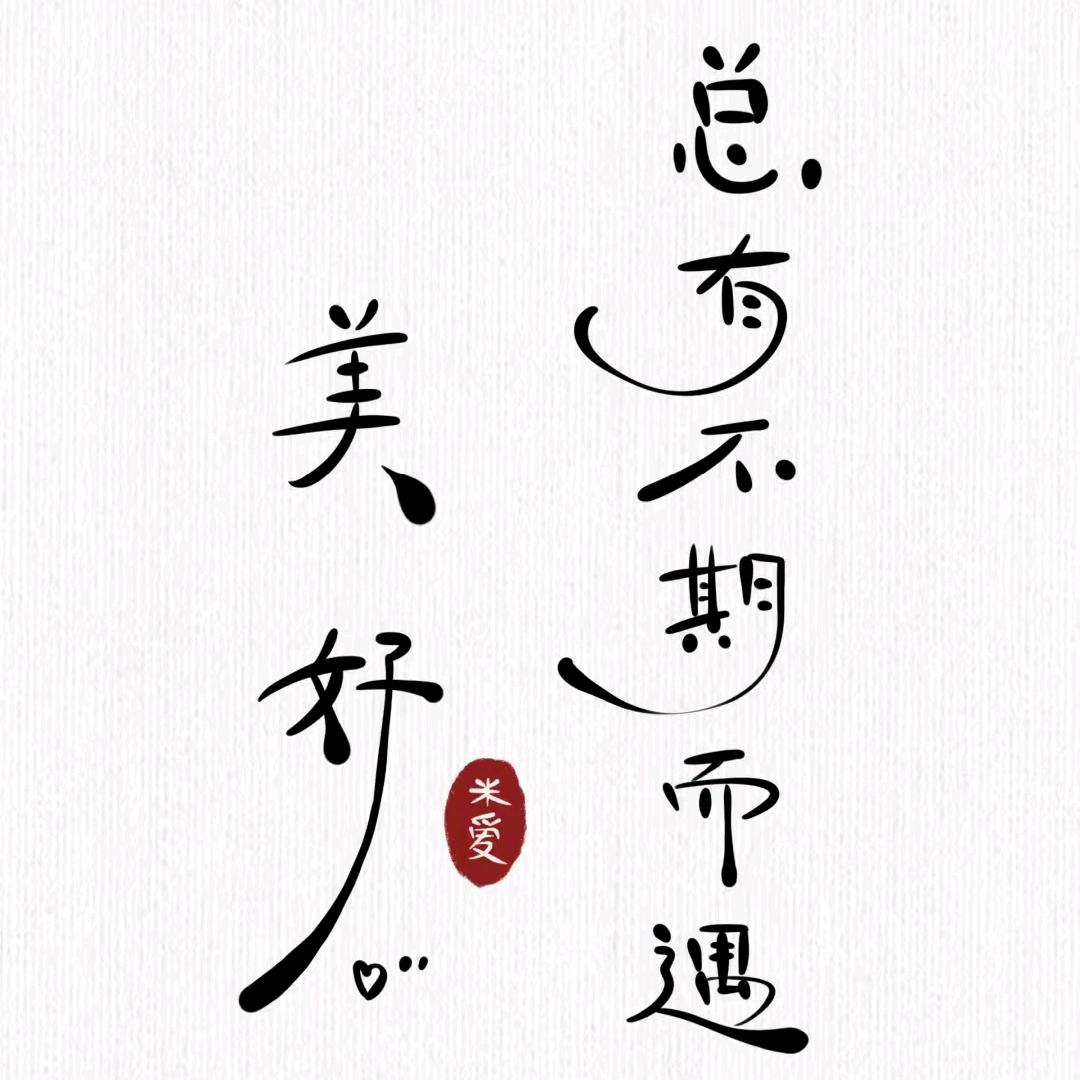 总有不期而遇
美好
米爱